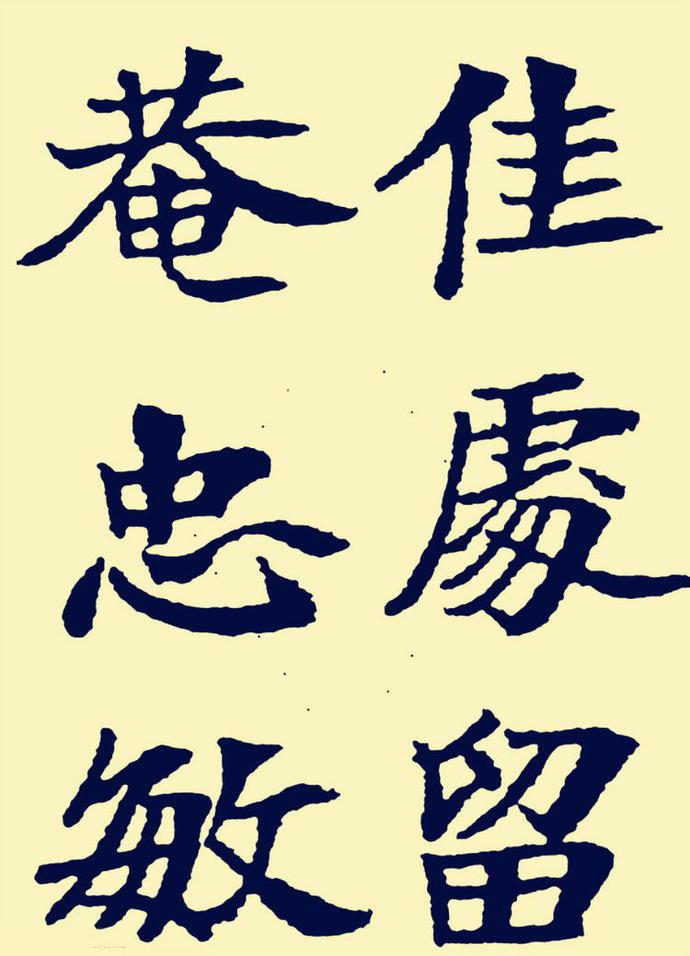 佳處留
菴忠敏